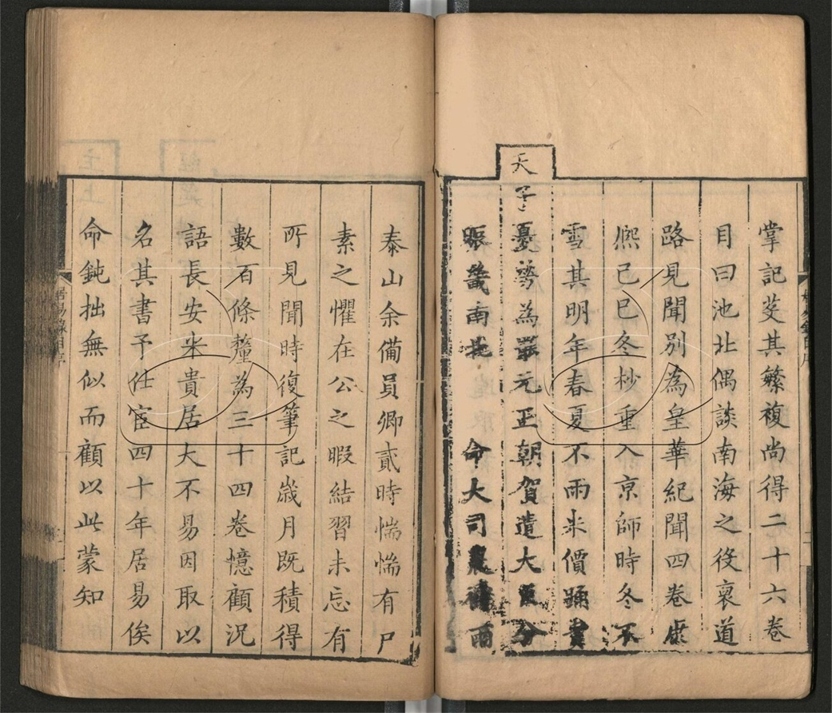 掌記芟其繁複尚得二十六卷
目曰池北偶談南海之役裒道
路見聞別為皇華紀聞四卷康
熈己巳冬杪重入京師時冬不
雪其明年春夏不雨米價踊貴
天子憂勞為罷元正朝賀遣大臣分
賑畿南北 命大司農禱雨
泰山余備員卿貳時惴惴有尸
素之懼在公之暇結習未忘有
所見聞時復筆記歲月既積得
數百條釐為三十四卷憶顧況
語長安米貴居大不易因取以
名其書予仕宦四十年居易俟
命鈍拙無似而顧以此蒙知
居易錄自序